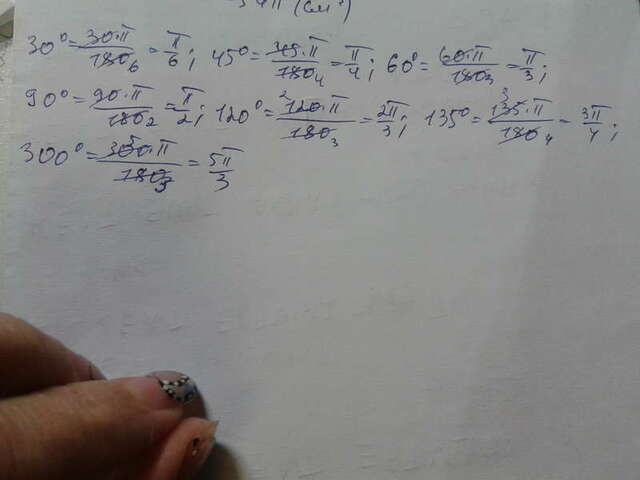 π (см²)
30° = 30·π/180 6 = π/6; 45° = 45·π/180 4 = π/4; 60° = 60·π/180 3 = π/3;
90° = 90·π/180 2 = π/2; 120° = 2 120·π/180 3 = 2π/3; 135° = 3 135·π/180 4 = 3π/4;
300° = 5 300·π/180 3 = 5π/3